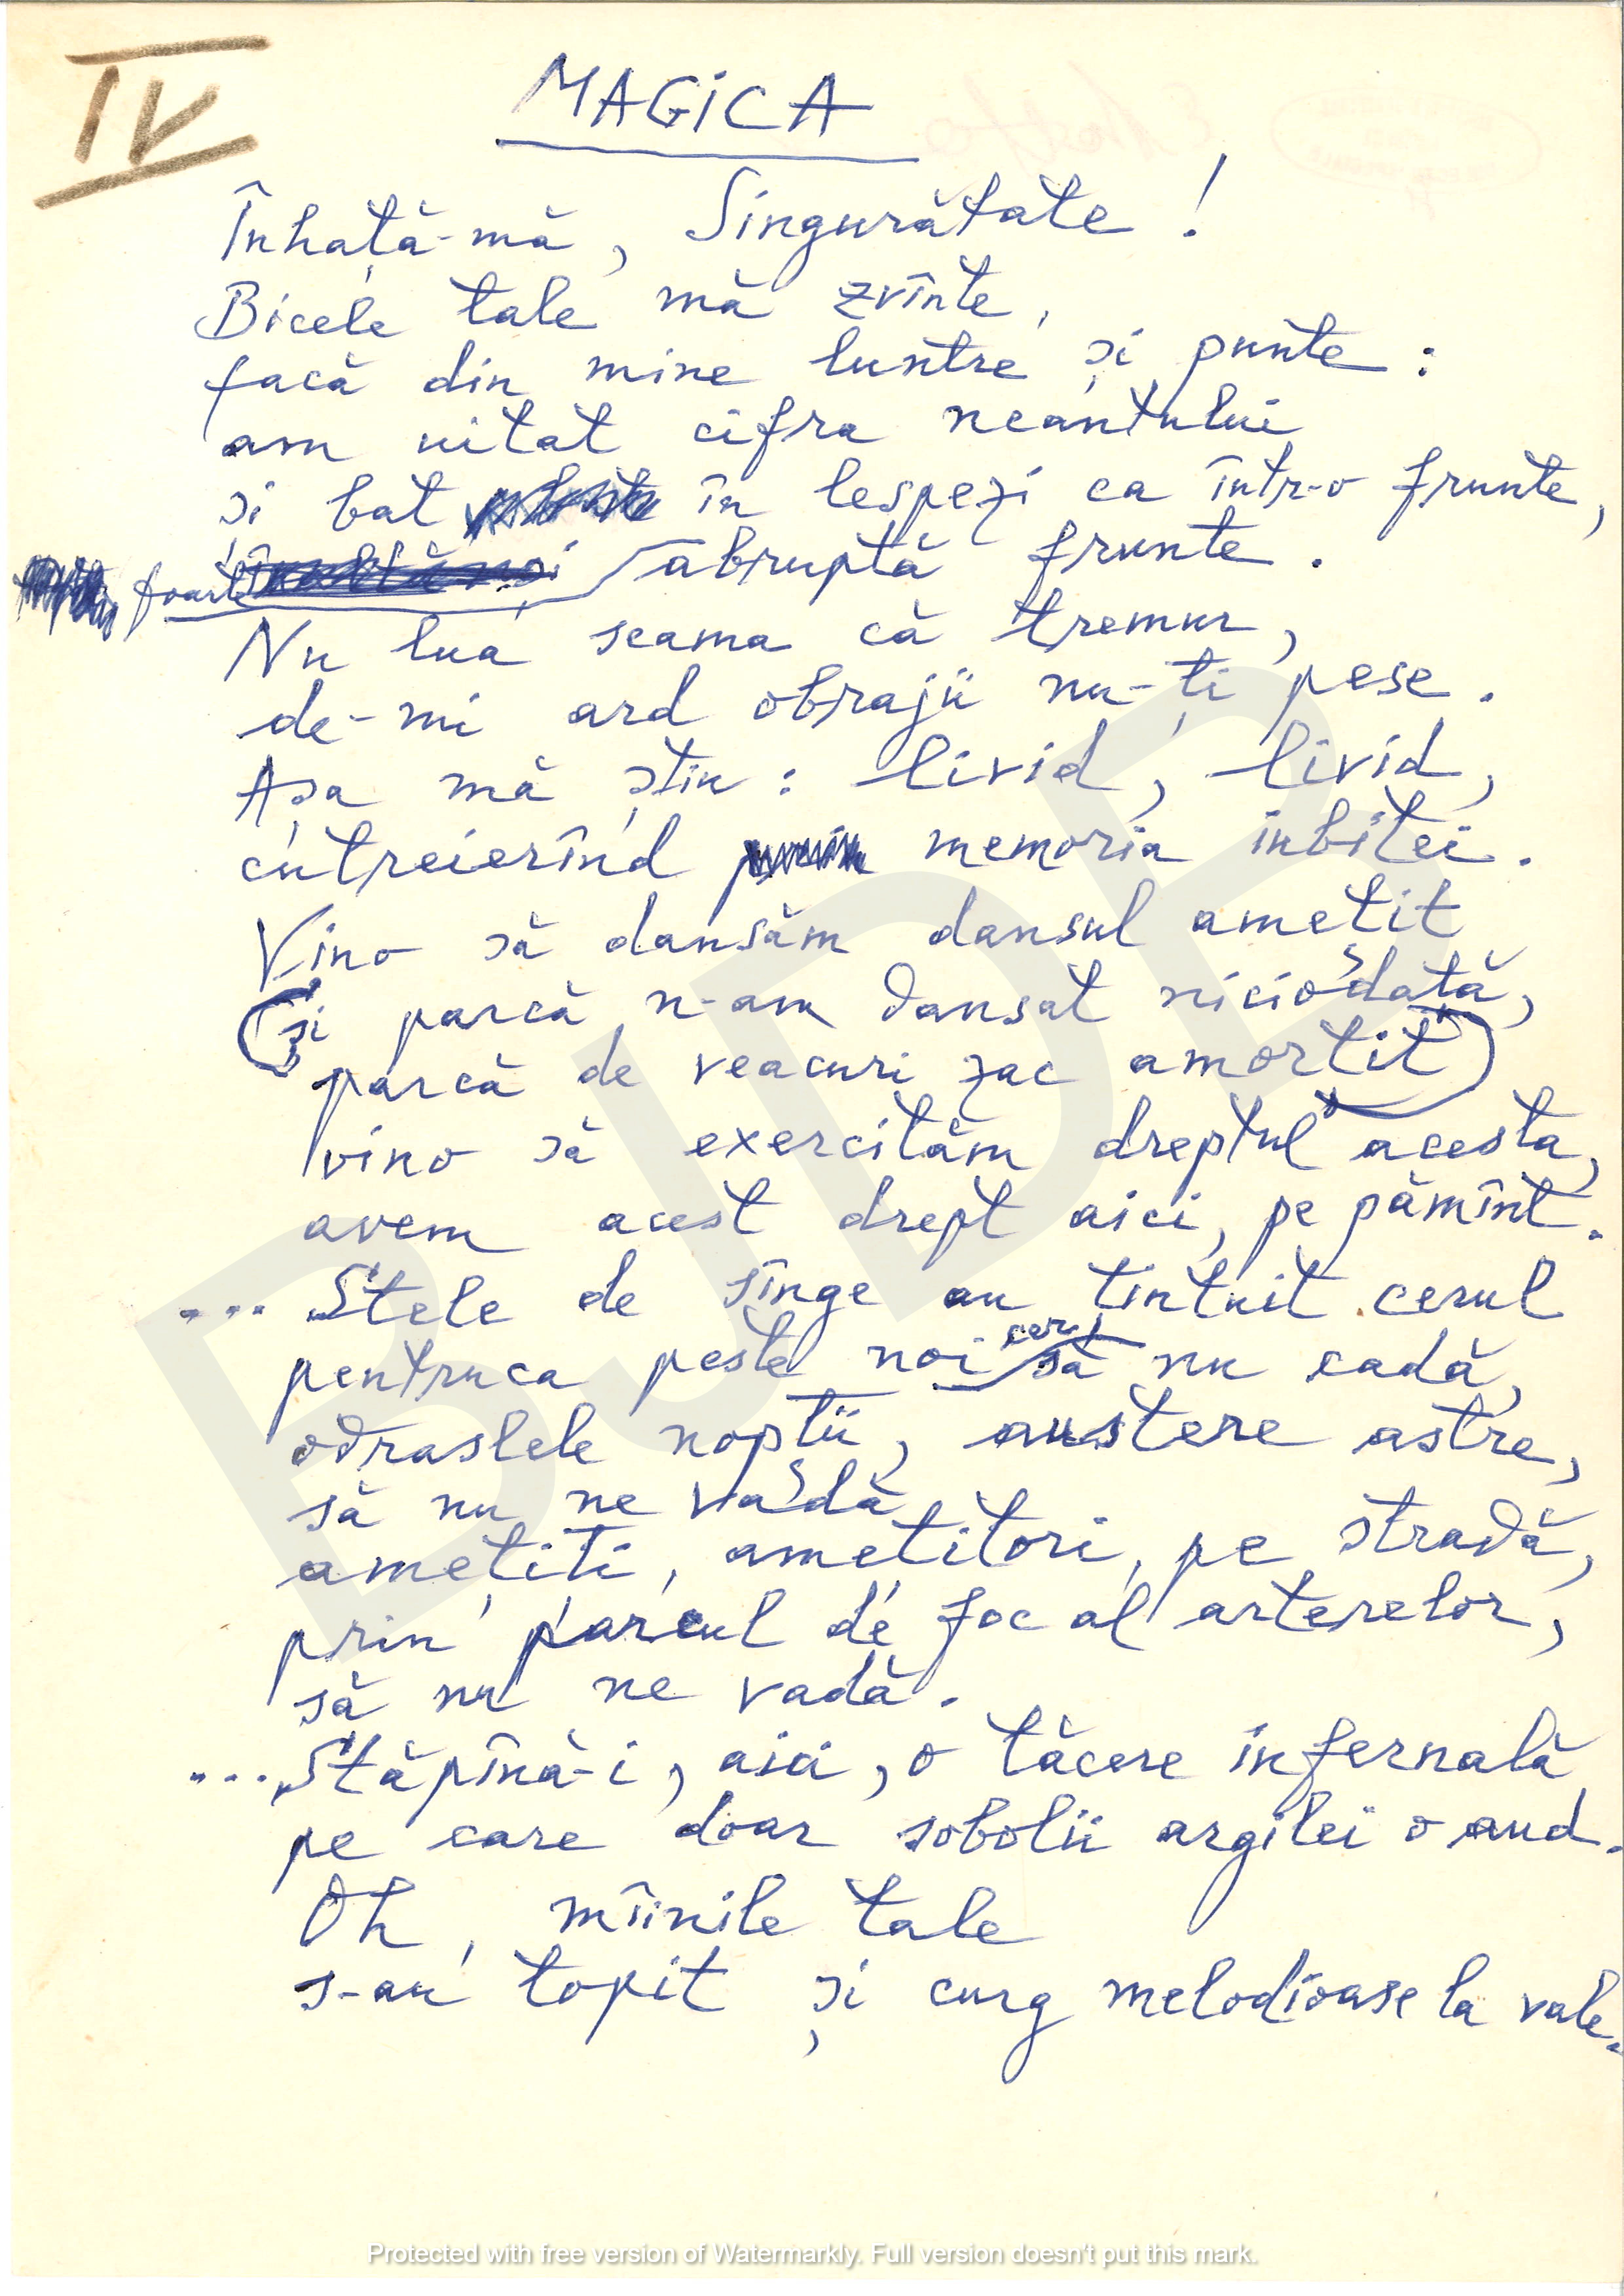 IV
MAGICA
Înhață-mă, Singurătate!
Bicele tale mă zvînte,
facă din mine luntre și punte:
am uitat cifra neantului
și bat în lespezi ca într-o frunte,
foarte abruptă frunte.
Nu lua seama că tremur,
de-mi ard obrajii nu-ți pese.
Așa mă știu: livid, livid,
cutreierînd memoria iubitei.
Vino să dansăm dansul ametit
(și parcă n-am dansat niciodată,
parcă de veacuri zac amortit)
vino să exercităm dreptul acesta,
avem acest drept aici, pe pămînt.
... Stele de sînge au tintuit cerul
pentruca peste noi cerul să nu cadă,
odraslele nopții, austere astre,
să nu ne vadă
amețiti, ametitori, pe stradă,
prin parcul de foc al arterelor,
să nu ne vadă.
... Stăpînă-i, aici, o tăcere infernală
pe care doar sobolii argilei o aud.
Oh, mîinile tale
s-au topit și curg melodioase la vale.
BJDB
Protected with free version of Watermarkly. Full version doesn't put this mark.